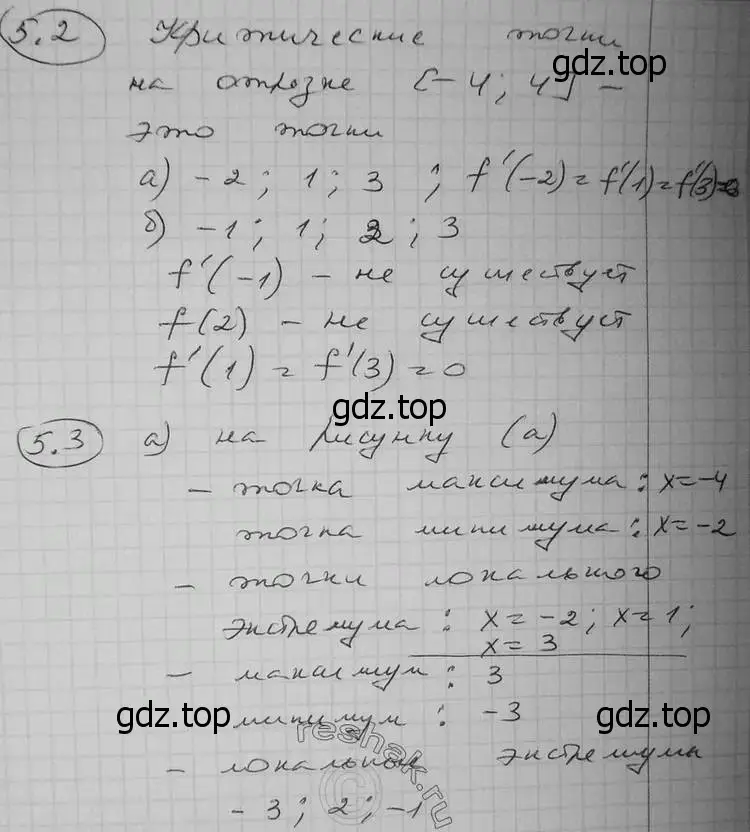 5.2 Критические точки
gdz.top
на отрезке [-4; 4] –
это точки
а) -2; 1; 3 ; f'(-2) = f'(1) = f'(3)=0
gdz.top gdz.top
б) -1; 1; 2; 3
f'(-1) – не существует
f(2) – не существует
f'(1) = f'(3) = 0
gdz.top
5.3 а) на рисунку (а)
– точка максимума: x=-4
gdz.top gdz.top
точка минимума: x=-2
– точки локального
экстремума: x=-2; x=1;
x=3
– максимум: 3
gdz.top минимум: -3 gdz.top
reshak.ru
– локальные экстремумы
-3; 2; -1
gdz.top